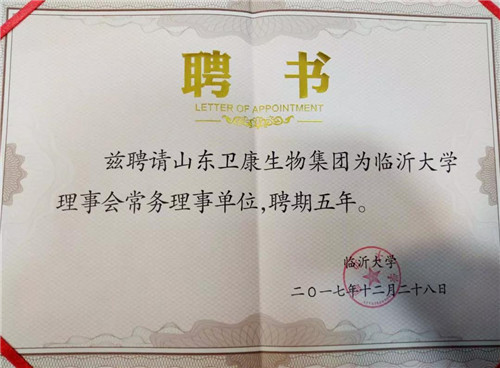 聘 书
LETTER OF APPOINTMENT
兹聘请山东卫康生物集团为临沂大学
理事会常务理事单位,聘期五年。
临沂大学
二〇一七年十二月二十八日